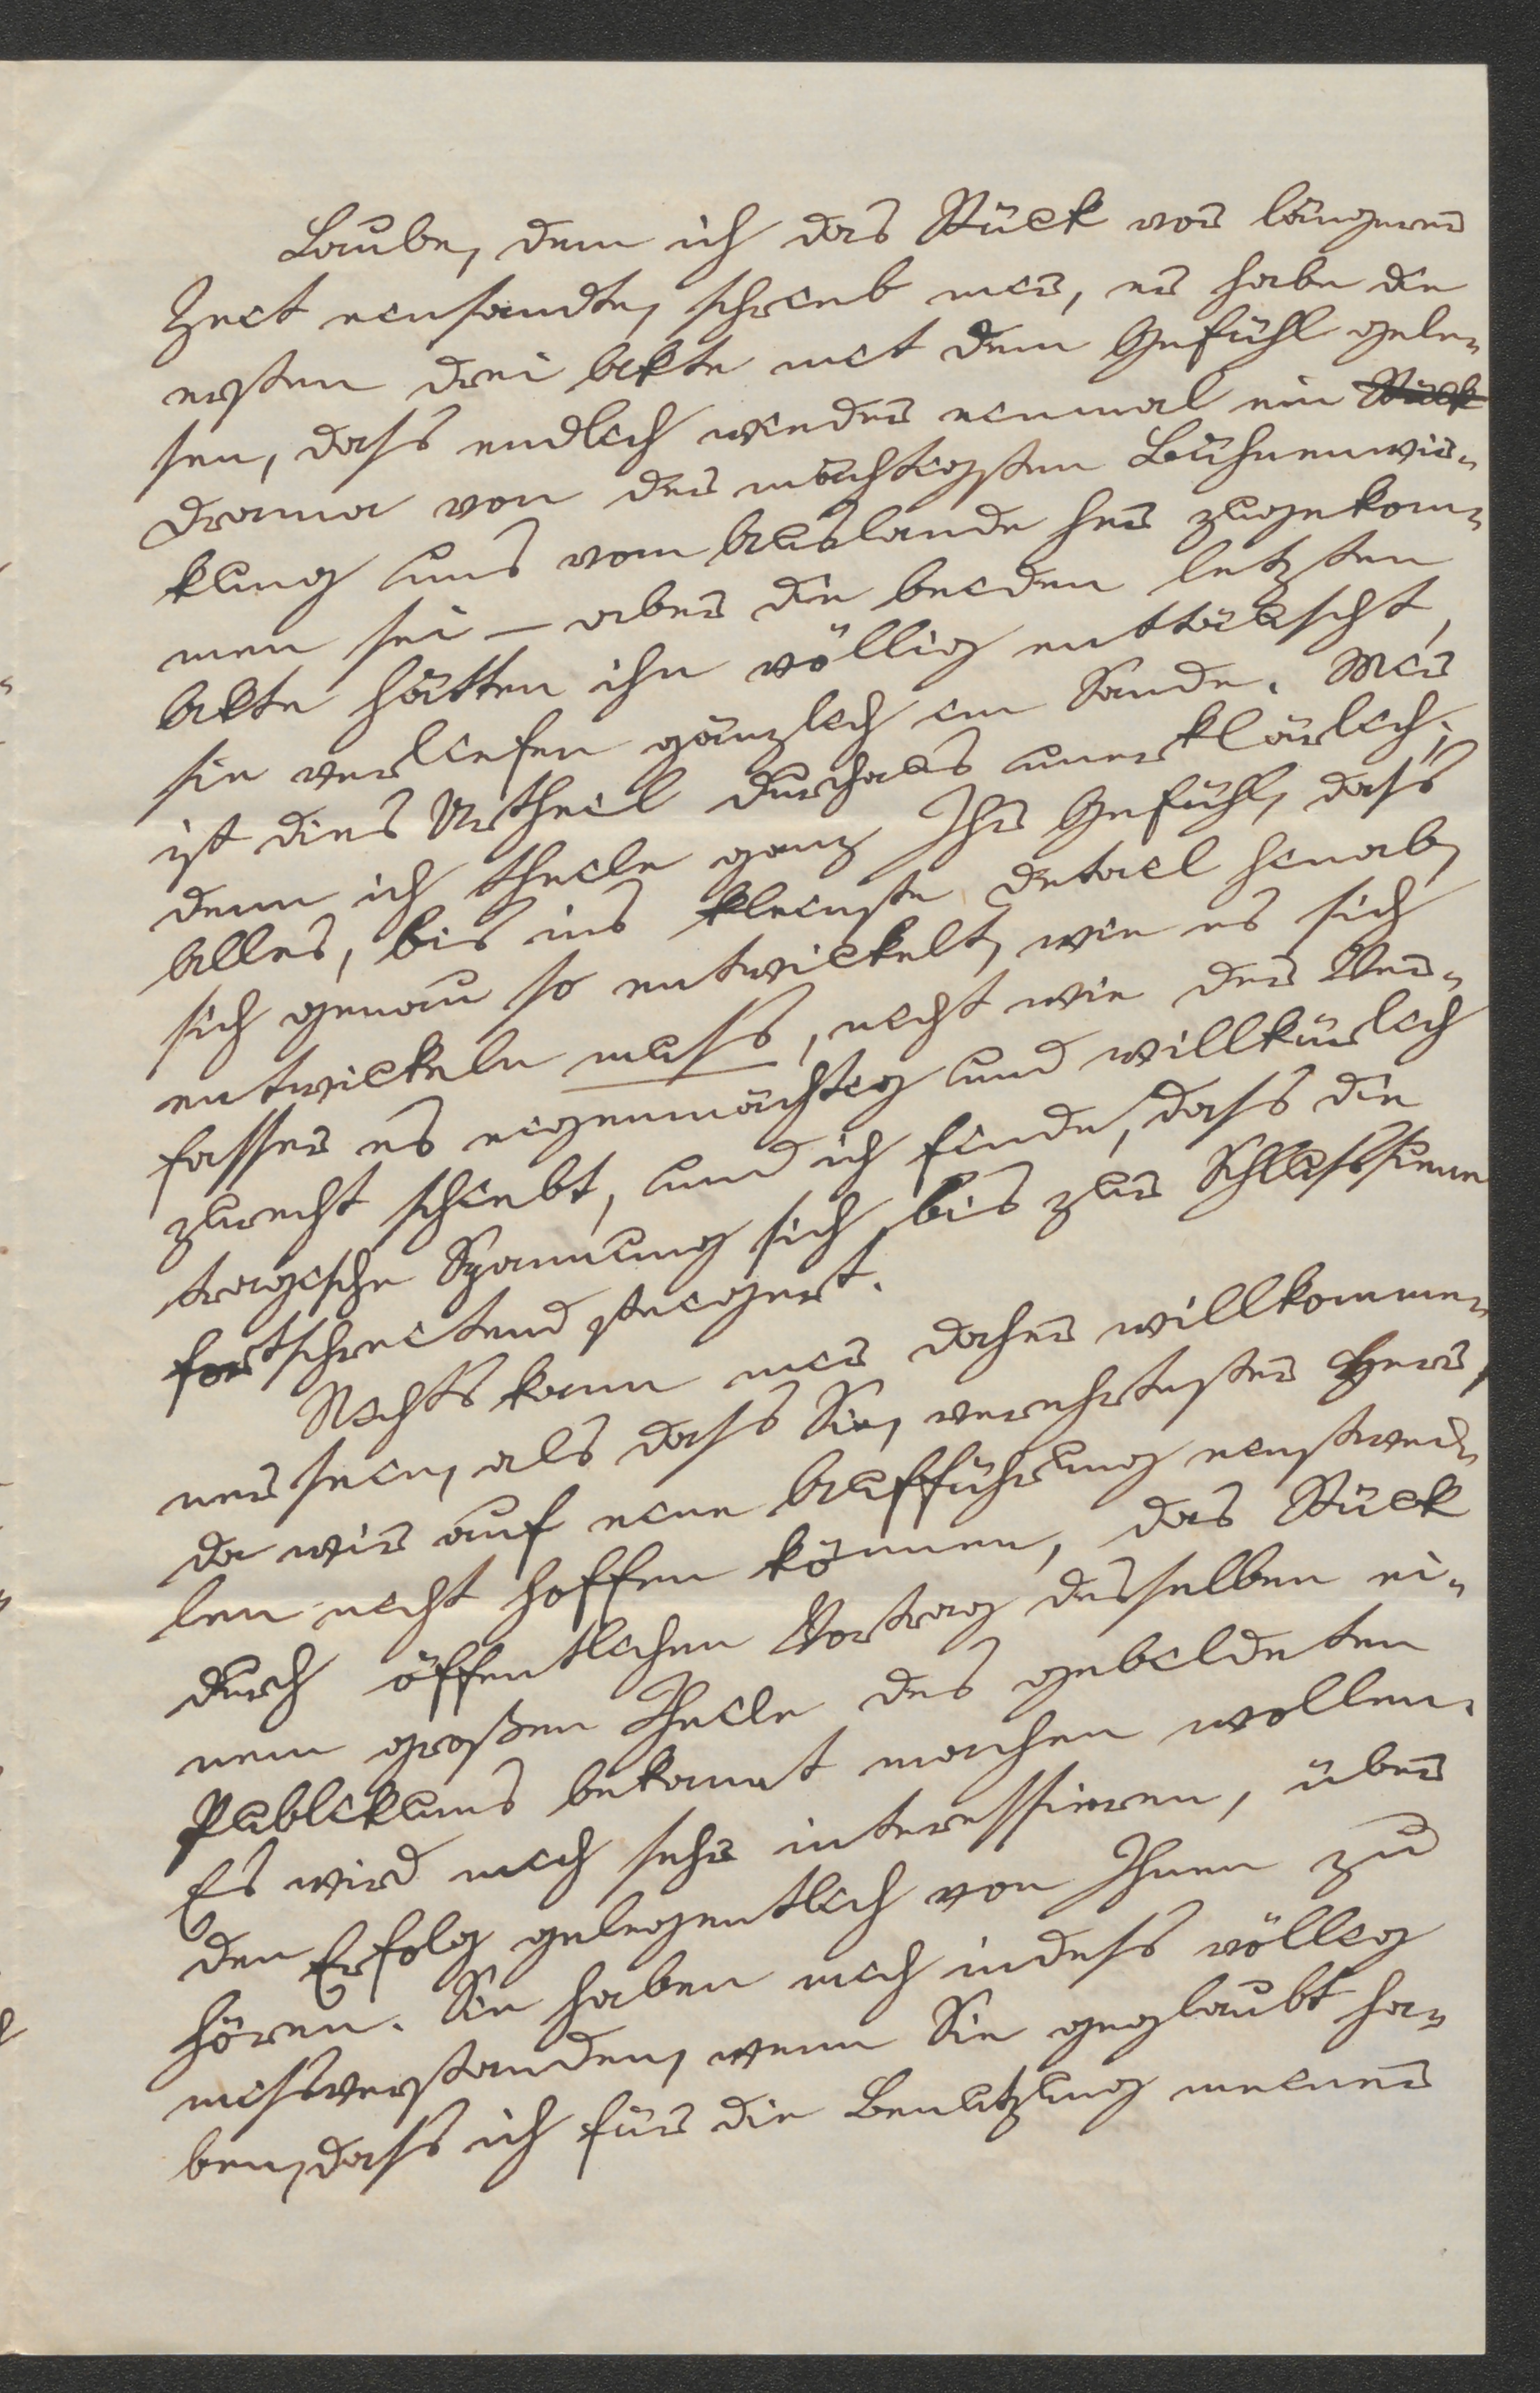 Laube, dem ich das Stück vor längerer
Zeit einsandte, schrieb mir, er habe die
ersten drei Akte mit dem Gefühl gele-
sen, dass endlich wieder einmal ein Stück
Drama von der mächtigsten Bühnenwir-
kung uns vom Auslande her zugekom-
men sei – aber die beiden letzten
Akte hätten ihn völlig enttäuscht,
sie verliefen gänzlich im Sande. Mir
ist dies Urtheil durchaus unerklärlich;
denn ich theile ganz Ihr Gefühl, dass
Alles, bis ins kleinste Detail hinab,
sich genau so entwickelt, wie es sich
entwickeln muss, nicht wie der Ver-
fasser es eigenmächtig und willkürlich
zurecht schiebt, und ich finde, dass die
tragische Spannung sich bis zur Schlussscene
fortschreitend steigert.
Nichts kann mir daher willkomme-
ner sein, als dass Sie, verehrtester Herr,
da wir auf eine Aufführung einstwei-
len nicht hoffen können, das Stück
durch öffentlichen Vortrag desselben ei-
nem großen Theile des gebildeten
Publikums bekannt machen wollen.
Es wird mich sehr interessieren, über
den Erfolg gelegentlich von Ihnen zu
hören. Sie haben mich indess völlig
missverstanden, wenn Sie geglaubt ha-
ben, dass ich für die Benutzung meiner